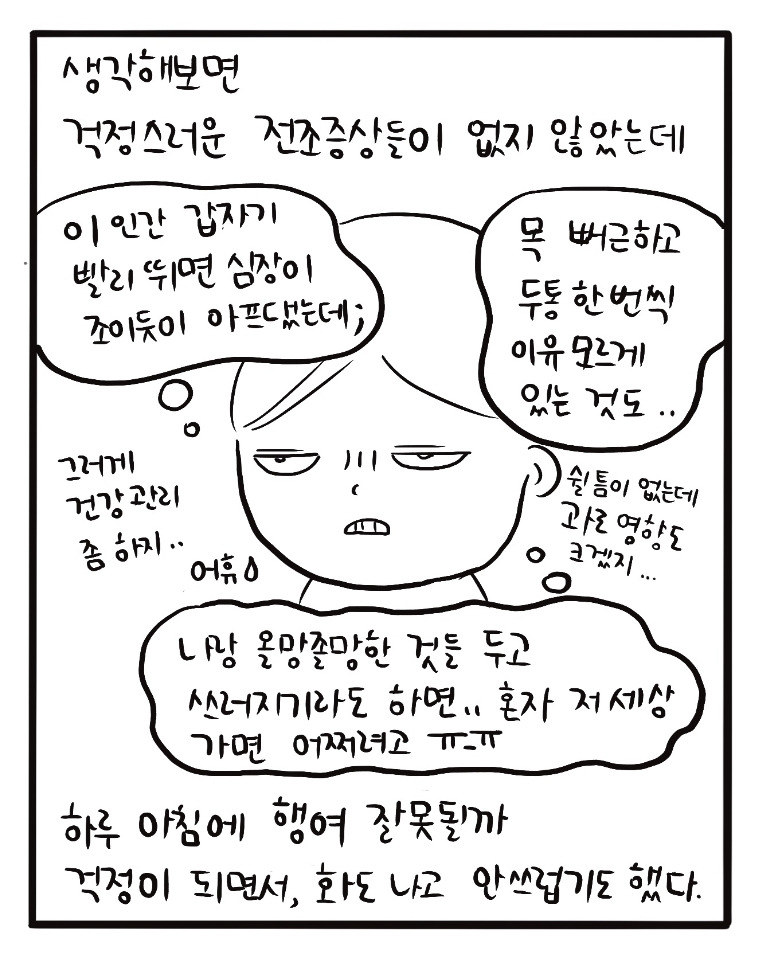 생각해보면
걱정스러운 전조증상들이 없지 않았는데
이 인간 갑자기
빨리 뛰면 심장이
조이듯이 아프댔는데;
목 뻐근하고
두통 한번씩
이유 모르게
있는 것도..
그러게
건강관리
좀 하지..
어휴
쉴틈이 없는데
과로 영향도
크겠지...
나랑 올망졸망한 것들 두고
쓰러지기라도 하면.. 혼자 저세상
가면 어쩌려고 ㅠ-ㅠ
하루 아침에 행여 잘못될까
걱정이 되면서, 화도 나고 안쓰럽기도 했다.